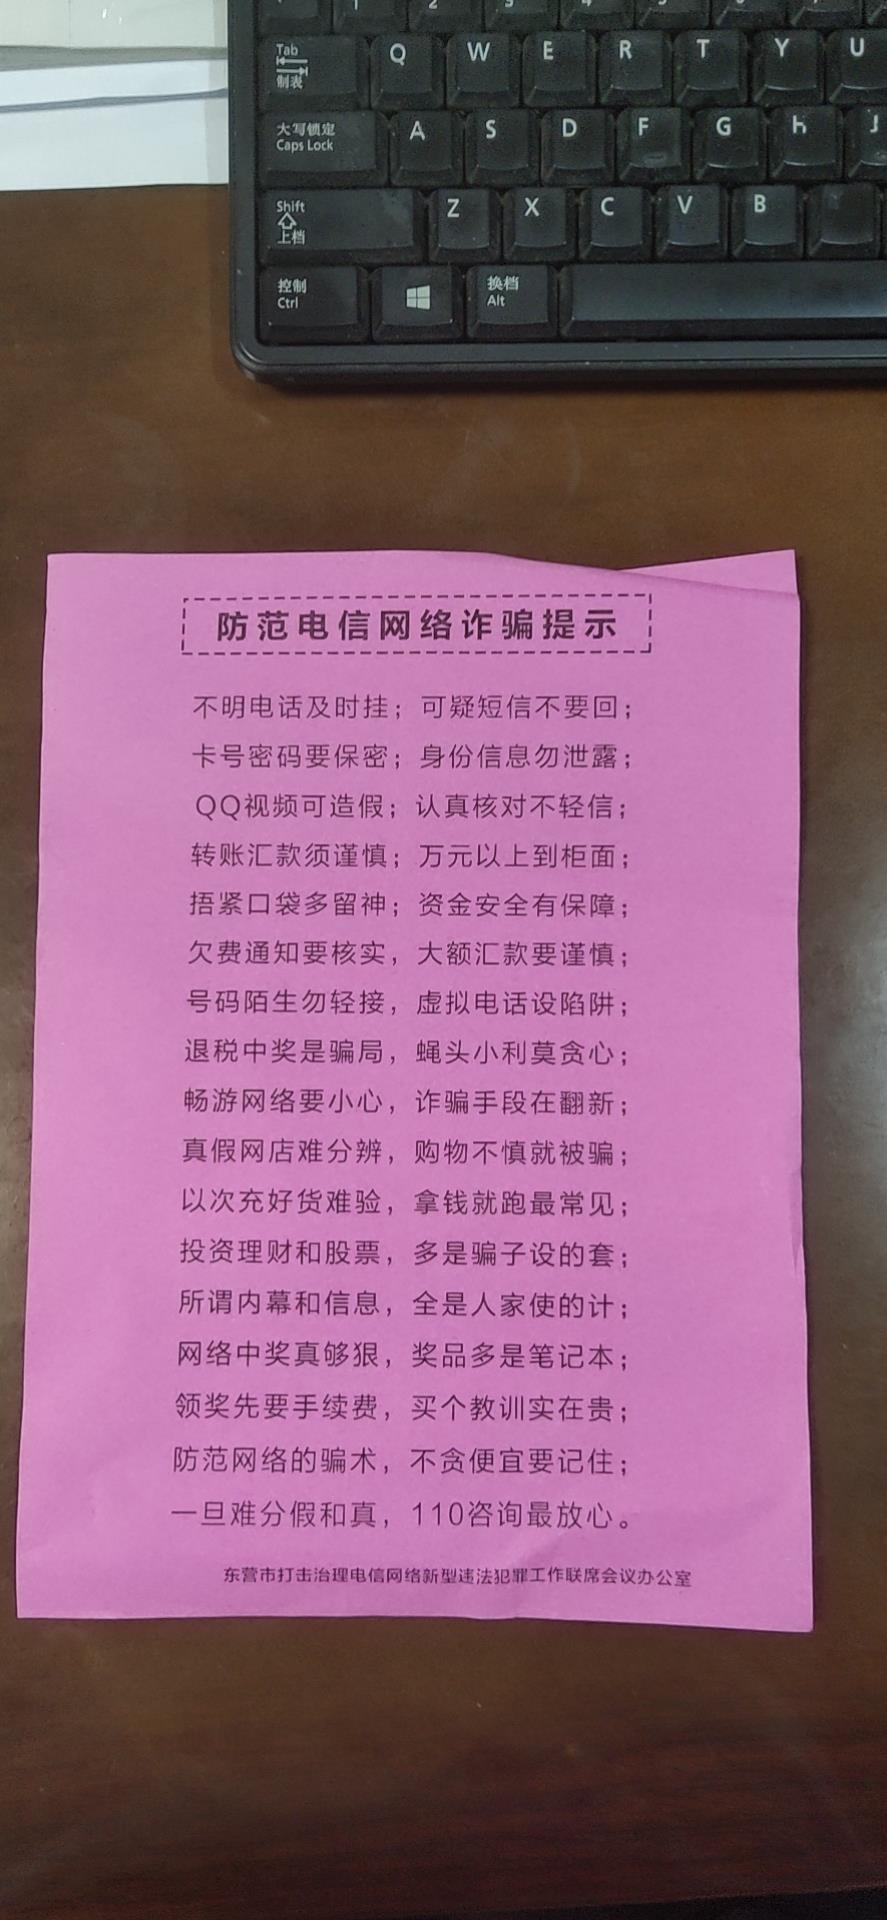 1 2 3 4 5
Tab
制表
Q W E R T Y U
大写锁定
Caps Lock
A S D F G H J
Shift
上档
Z X C V B
控制
Ctrl
换档
Alt
防范电信网络诈骗提示
不明电话及时挂；可疑短信不要回；
卡号密码要保密；身份信息勿泄露；
QQ视频可造假；认真核对不轻信；
转账汇款须谨慎；万元以上到柜面；
捂紧口袋多留神；资金安全有保障；
欠费通知要核实，大额汇款要谨慎；
号码陌生勿轻接，虚拟电话设陷阱；
退税中奖是骗局，蝇头小利莫贪心；
畅游网络要小心，诈骗手段在翻新；
真假网店难分辨，购物不慎就被骗；
以次充好货难验，拿钱就跑最常见；
投资理财和股票，多是骗子设的套；
所谓内幕和信息，全是人家使的计；
网络中奖真够狠，奖品多是笔记本；
领奖先要手续费，买个教训实在贵；
防范网络的骗术，不贪便宜要记住；
一旦难分假和真，110咨询最放心。
东营市打击治理电信网络新型违法犯罪工作联席会议办公室